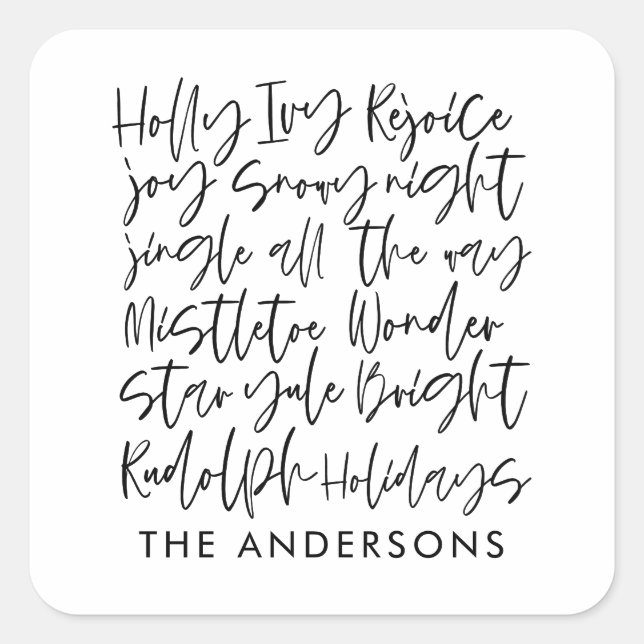 Holly Ivy Rejoice
joy Snowy night
jingle all the way
Mistletoe Wonder
Star Yule Bright
Rudolph Holidays
THE ANDERSONS